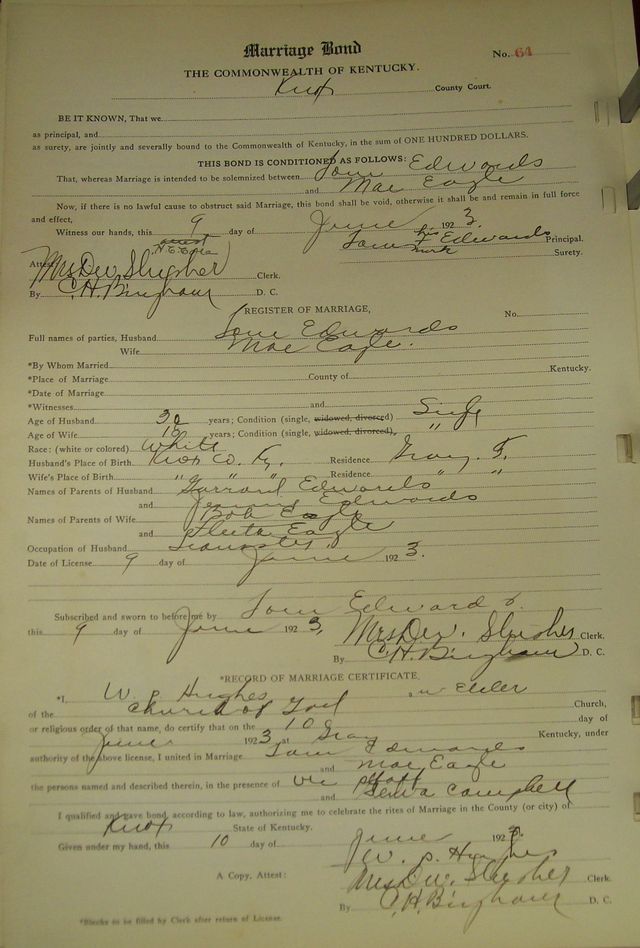 Marriage Bond
No. 61
THE COMMONWEALTH OF KENTUCKY.
Knox County Court.
BE IT KNOWN, That we
as principal, and
as surety, are jointly and severally bound to the Commonwealth of Kentucky, in the sum of ONE HUNDRED DOLLARS.
THIS BOND IS CONDITIONED AS FOLLOWS:
That, whereas Marriage is intended to be solemnized between Tom Edwards
and Mae Eagle
Now, if there is no lawful cause to obstruct said Marriage, this bond shall be void, otherwise it shall be and remain in full force
and effect,
Witness our hands, this 9 day of June 1923.
Tom his Edwards Principal.
mark Surety.
attest
Attest Mrs Dew Slusher Clerk.
By C.H. Bingham D. C.
REGISTER OF MARRIAGE, No.
Full names of parties, Husband Tom Edwards
Wife Mae Eagle.
*By Whom Married
*Place of Marriage County of Kentucky.
*Date of Marriage
*Witnesses and
Age of Husband years; Condition (single, widowed, divorced) Single
Age of Wife years; Condition (single, widowed, divorced), " "
Race: (white or colored) White
Husband's Place of Birth Knox Co. Ky. Residence Gray.
Wife's Place of Birth " " " Residence " "
Names of Parents of Husband Garrard Edwards
and Edwards
Names of Parents of Wife Bob Eagle
and Eagle
Occupation of Husband Teamster
Date of License 9 day of June 1923.
Subscribed and sworn to before me by Tom Edwards
this 9 day of June 1923, Mrs Dew. Slusher Clerk.
By C.H. Bingham D. C.
*RECORD OF MARRIAGE CERTIFICATE.
*I, W. P. Hughes an Elder
of the Church of God Church,
or religious order of that name, do certify that on the 10 day of
June 1923 at Gray Kentucky, under
authority of the above license, I united in Marriage Tom Edwards
and Mae Eagle
the persons named and described therein, in the presence of
and Campbell
I qualified and gave bond, according to law, authorizing me to celebrate the rites of Marriage in the County (or city) of
Knox State of Kentucky.
Given under my hand, this 10 day of June 1923.
W. P. Hughes
A Copy, Attest: Mrs Dew. Slusher Clerk.
By C.H. Bingham D. C.
*Blanks to be filled by Clerk after return of License.